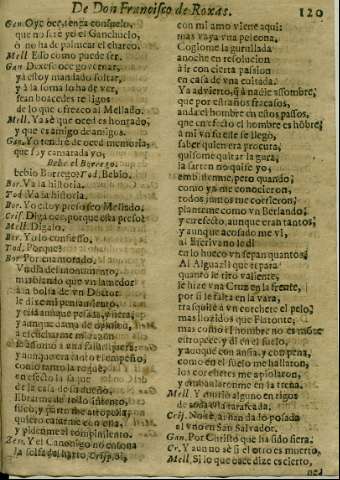 De Don Francisco de Roxas. 120
Gan. Oyc oce, tenga consuelo,
que no sere yo el Ganchuelo,
ò no ha de palmear el charco.
Mell. Esso como puede ser.
Gan. Dexese oce governar,
ya estoy mandado soltar,
y à la soma lo ha de ver,
sean boacedes testigos
de lo que ofrezco al Mellado.
Mell. Ya sè que oced es hongado,
y que es amigo de amigos.
Gan. Yo tendrè de oced memoria,
que soy camarada yo,
Bebe el Borrego.
bebio Borrego? Tod. Bebio.
Bor. Va la historia.
Tod. Va la historia.
Bor. Yo estoy preso seo Mellado.
Cris. Diga oce, porque esta preso?
Mell. Digalo.
Bor. Yo lo confiesso,
Tod. Porque?
Bor. Por enamorado,
Un dia del monumento,
mirando que un lamedor
a la bolsa de un Doctor
le dixe mi pensamiento,
y ella aunque pesada, y fiera,
y aunque dama de
à escucharme mi razon
le assoma
y aunque era tanto el empeño,
como tanto la roguè,
en efecto la saquè
de la casa de su dueño,
librarme de todo
supo, y
quiero casarme con ella,
y pidenme el rompimiento.
Zen. Y el Canonigo no ensona
la solfa del harto Crisp. Si,
con mi amo viene aqui:
mas vaya una peleona,
Cogiome la gurullada
anoche en resolucion
à ir con cierta passion
en casa de una coltada.
Ya advierto, q̃ à nadie assombre,
que por estraños fracasos,
anda el hombre en otros passos,
que en efecto el hombre es hõbre,
à mi un fuelle se llegò,
saber quien era procura,
quisome quitar la gura,
la farten no quise yo,
embistieme, pero quando
como ya me conocieron,
todos juntos me corrieron,
plantème como un Berlando;
y en efecto, aunque eran tantos,
y aunque acosado me vi,
al Escrivano le di
en lo hueco un sepan quantos,
Al Alguazil que repara
quanto le tiro valiente,
le hize una Cruz en la frente,
por si le falta en la vara,
trasquilè à un corchete el pelo,
mas llovidos que Flaponte,
mas como el hombre no es monte
estropecè, y dì en el suelo,
y aunque con ansia, y con pena,
como en el suelo me hallaron,
los corchetes me apiolaron,
y embanaronme en la trena.
Mell. Y aurido alguno en rigos
de toda essa marafcada,
Crij. No sè, à han dado posada
à uno en San Salvador.
Gan. Por Christo que ha sido fiera.
Cr. Y aun no sè si el otro es muerto,
Mell. Si lo que oace dize es cierto,
ned